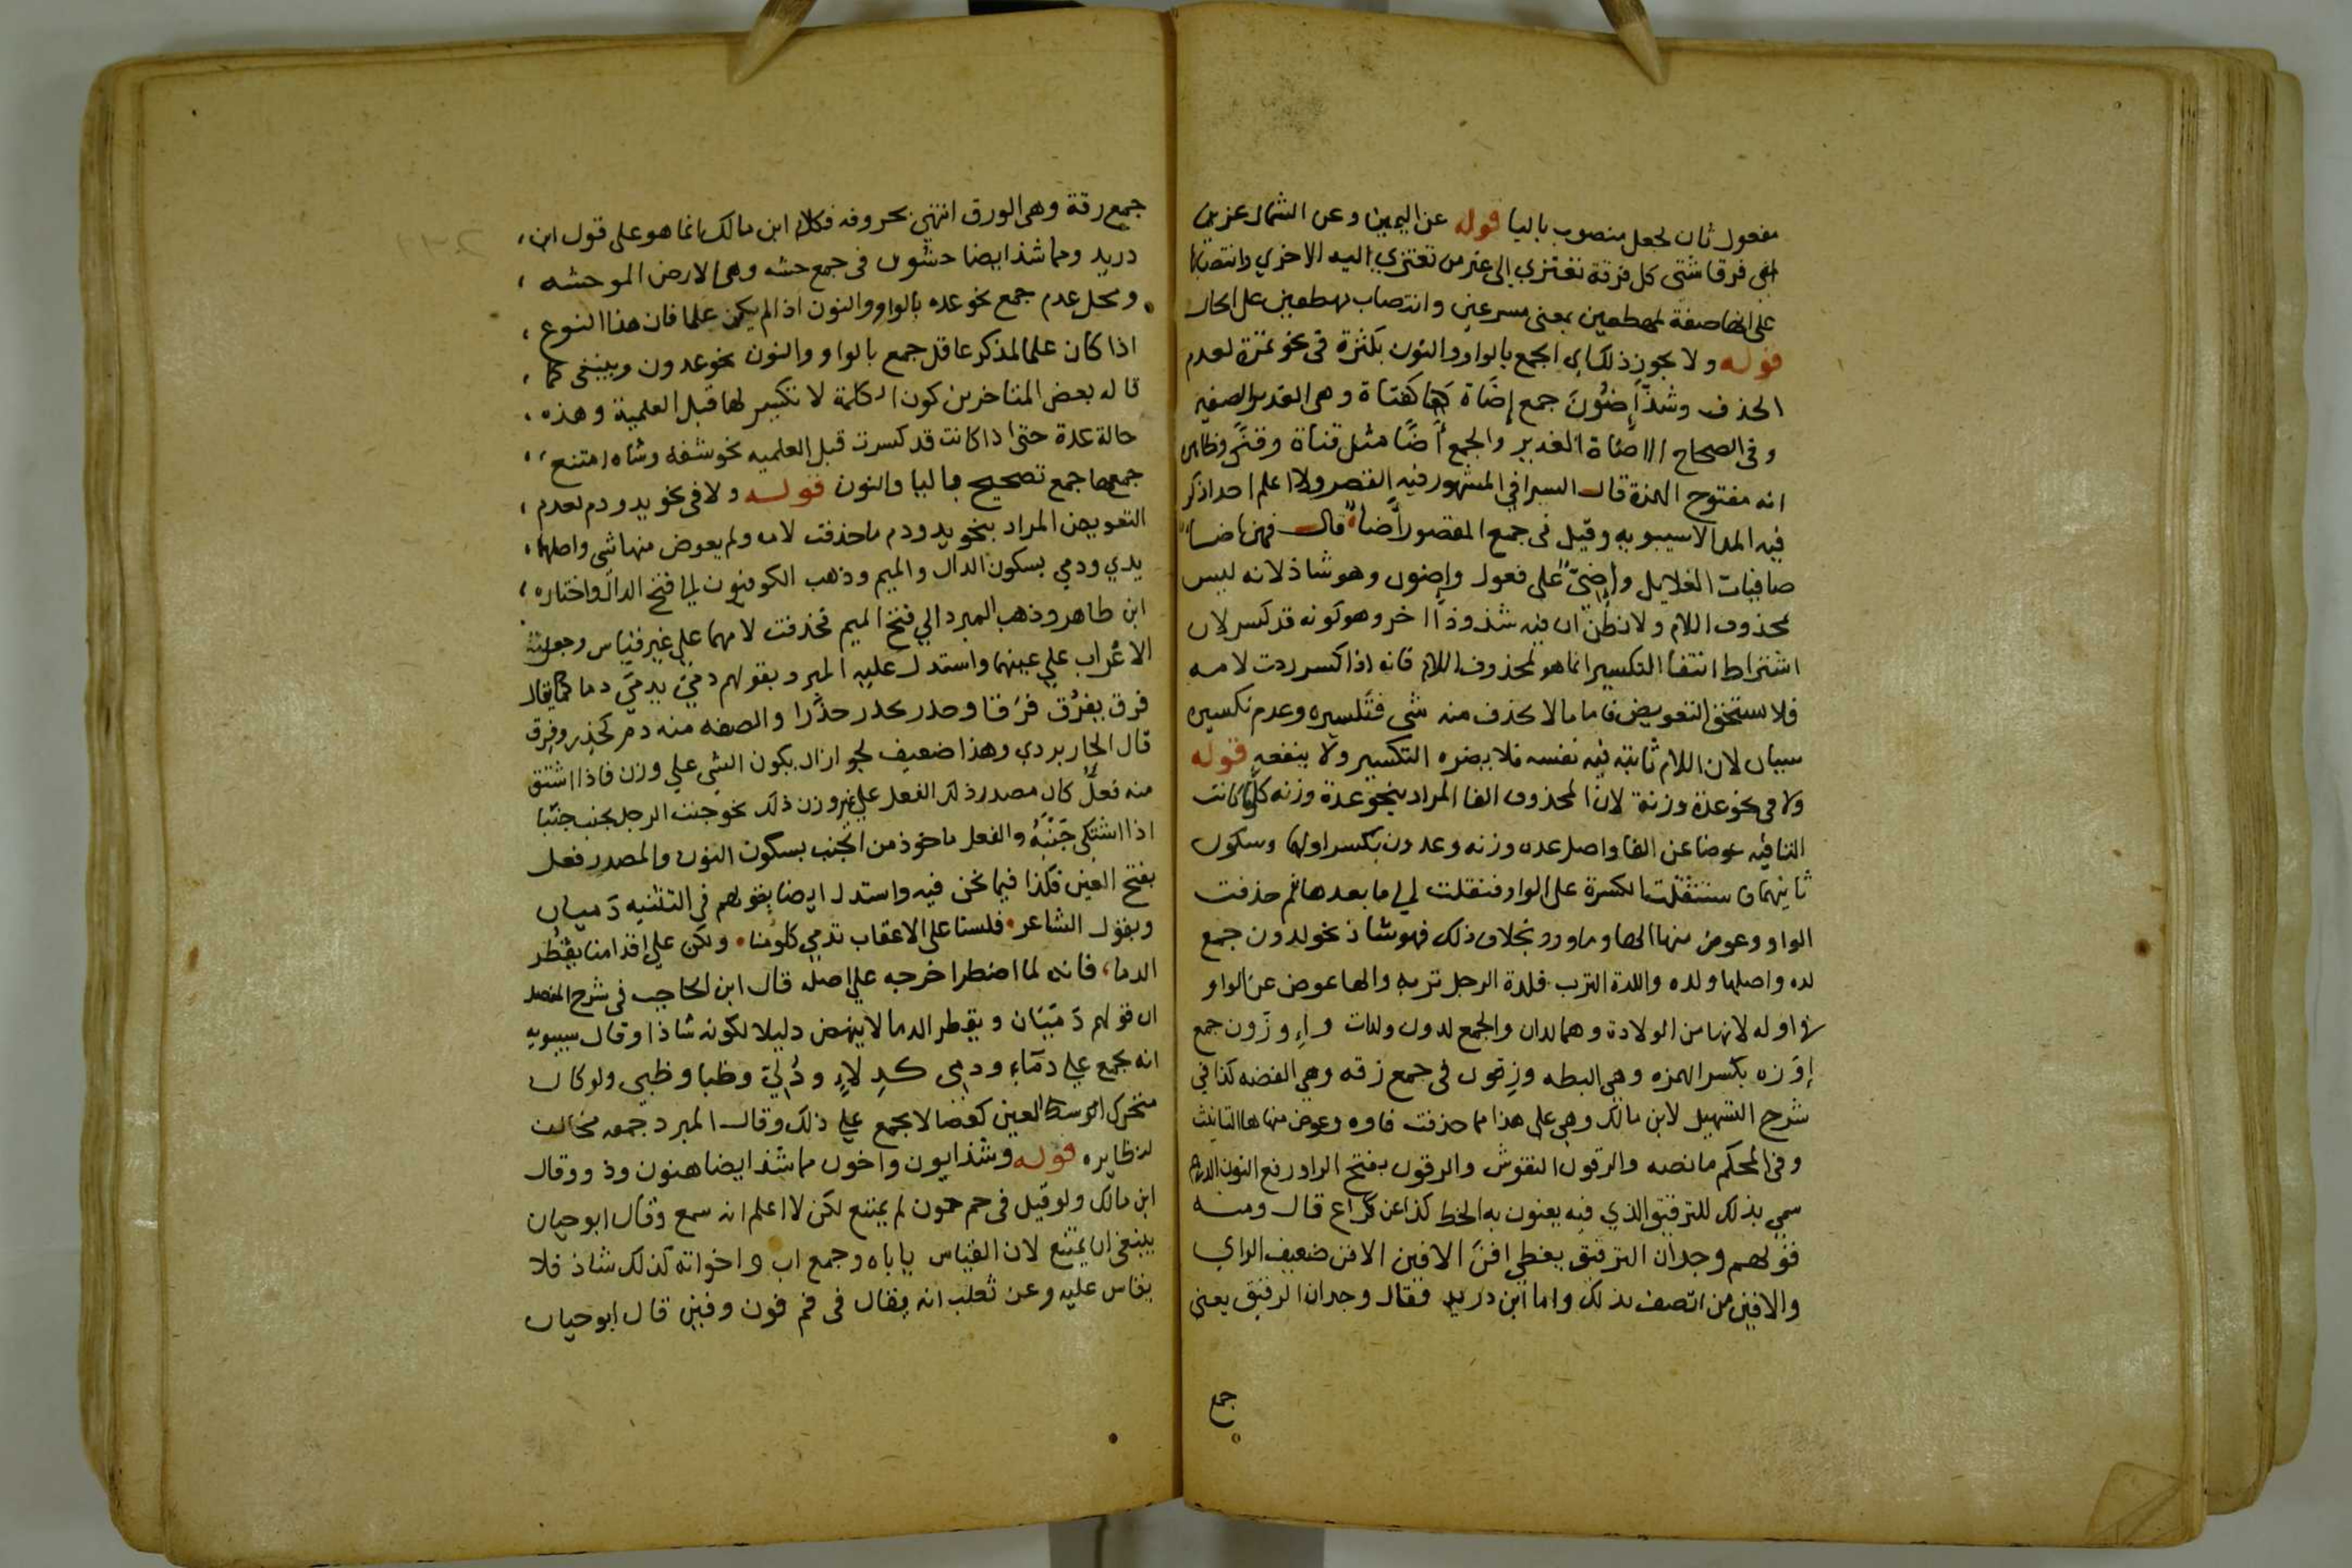 مفعول ثان لجعل منصوب باليا قوله عن اليمين وعن الشمال عزين
اي فرقا شتى كل فرقة تعتزي الى غير من تعتزي اليه الاخري وانتصابها
على انها صفة لمهطعين بمعنى مسرعين وانتصاب مهطعين على الحال
قوله ولا يجوز ذلك اي الجمع بالواو والنون بكثرة في نحو تمرة لعدم
الحذف وشذ إضُونَ جمع إضَاة كقناة وهي الغدير الصغير
وفي الصحاح الاضاة الغدير والجمع أضًا مثل قناة وقنًى وظاهره
انه مفتوح الهمزة قال السيرافي المشهور فيه القصر ولا اعلم احدا ذكر
فيه المد الا سيبويه وقيل في جمع المقصور أضاء قال فهن اضاء
صافيات الغلايل وإضيّ على فعول وإضون وهو شاذ لانه ليس
محذوف اللام ولا تظن ان فيه شذوذا اخر وهو كونه قد كسر لان
اشتراط انتفا التكسير انما هو لمحذوف اللام فانه اذا كسر ردت لامه
فلا يستحق التعويض فاما ما لا يحذف منه شي فتكسيره وعدم تكسيره
سيان لان اللام ثابتة فيه نفسه فلا يضره التكسير ولا ينفعه قوله
ولا في نحو عدة وزنة لان المحذوف الفا المراد بنحو عدة وزنه كلما كانت
التا فيه عوضا عن الفا واصل عده وزنه وعد وزن بكسر اولهما وسكون
ثانيهما فاستثقلت الكسرة على الواو فنقلت لي ما بعدها ثم حذفت
الواو وعوض منها الها وما ورد بخلاف ذلك فهو شاذ نحو لدون جمع
لده واصلها ولده واللدة الترب فلدة الرجل تربه والها عوض عن الواو
في اوله لانها من الولادة وهما لدان والجمع لدون ولدات وإوزّون جمع
إوَزه بكسر الهمزه وهي البطه وزقون في جمع زقه وهي الفضه كذا في
شرح التسهيل لابن مالك وهي على هذا مما حذفت فاوه وعوض منها ها التانيث
وفي المحكم ما نصه والرقون النقوش والرقون بفتح الرا ورفع النون الدرهم
سمي بذلك للترقيق الذي فيه يعنون به الخط كذا عن كراع قال ومنه
قولهم وجدان الرقين يغطي افن الافين الافن ضعيف الراي
والافين من اتصف بذلك واما ابن دريد فقال وجدان الرقين يعني
جمع
جمع رقة وهي الورق انتهي بحروفه فكلام ابن مالك انما هو على قول ابن
دريد ومما شذ ايضا حشون في جمع حشه وهي الارض الموحشه
ومحل عدم جمع نحو عده بالواو والنون اذا لم يكن علما فان هذا النوع
اذا كان علما لمذكر عاقل جمع بالواو والنون نحو عدون وينبغي كما
قاله بعض المتاخرين كون الكلمة لا تكسير لها قبل العلمية وهذه
حالة عدة حتى اذا كانت قد كسرت قبل العلميه نحو شفه وشاه امتنع
جمعها جمع تصحيح باليا والنون قوله ولا في نحو يد ودم لعدم
التعويض المراد بنحو يد ودم ما حذفت لامه ولم يعوض منها شي واصلهما
يدي ودمي بسكون الدال والميم وذهب الكوفيون الي فتح الدال واختاره
ابن طاهر وذهب المبرد الي فتح الميم فحذفت لامهما علي غير قياس وجعلت
الاعراب علي عينهما واستدل عليه المبرد بقولهم دمي يدمي دما كما يقال
فرق يفرَق فرَقا وحذر يحذر حذَرا والصفه منه دم كحذر وفرق
قال الجاربردي وهذا ضعيف لجواز ان يكون الشي علي وزن فاذا اشتق
منه فعلٌ كان مصدر ذلك الفعل علي غير وزن ذلك نحو جنب الرجل يجنب جنَبا
اذا اشتكي جَنْبَهُ والفعل ماخوذ من الجنب بسكون النون والمصدر فعل
بفتح العين فكذا فيما نحن فيه واستدل ايضا بقولهم في التثنيه دَميان
وبقول الشاعر فلسنا على الاعقاب تدمي كلومنا ولكن علي اقدامنا يقطُر
الدما، فانه لما اضطر اخرجه علي اصله قال ابن الحاجب في شرح المفصل
ان قولهم دَميَان ويقطر الدما لا ينهض دليلا لكونه شاذا وقال سيبويه
انه يجمع علي دمَاءٍ ودمي كدلاءٍ ودُليّ وظبا وظبي ولو كان
متحرك الوسط العين كقفا لا يجمع علي ذلك وقال المبرد جمعه مخالف
لنظايره قوله وشذ ابون واخون مما شذ ايضا هنون وذوو وقال
ابن مالك ولو قيل في حم حمون لم يمتنع لكن لا اعلم انه سمع وقال ابو حيان
ينبغي ان يمتنع لان القياس ياباه وجمع اب واخواته كذلك شاذ فلا
يقاس عليه وعن ثعلب انه يقال في فم فون وفين قال ابو حيان